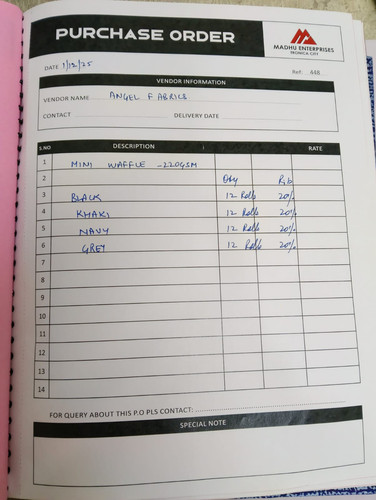 PURCHASE ORDER
MADHU ENTERPRISES
TRONICA CITY
DATE 1/12/25
Ref: 448
VENDOR INFORMATION
VENDOR NAME ANGEL FABRICS
CONTACT DELIVERY DATE
S.NO DESCRIPTION RATE
1 MINI WAFFLE - 220GSM
2 Qty Rib
3 BLACK 12 Rolls 20%
4 KHAKI 12 Rolls 20%
5 NAVY 12 Rolls 20%
6 GREY 12 Rolls 20%
7
8
9
10
11
12
13
14
FOR QUERY ABOUT THIS P.O PLS CONTACT:
SPECIAL NOTE